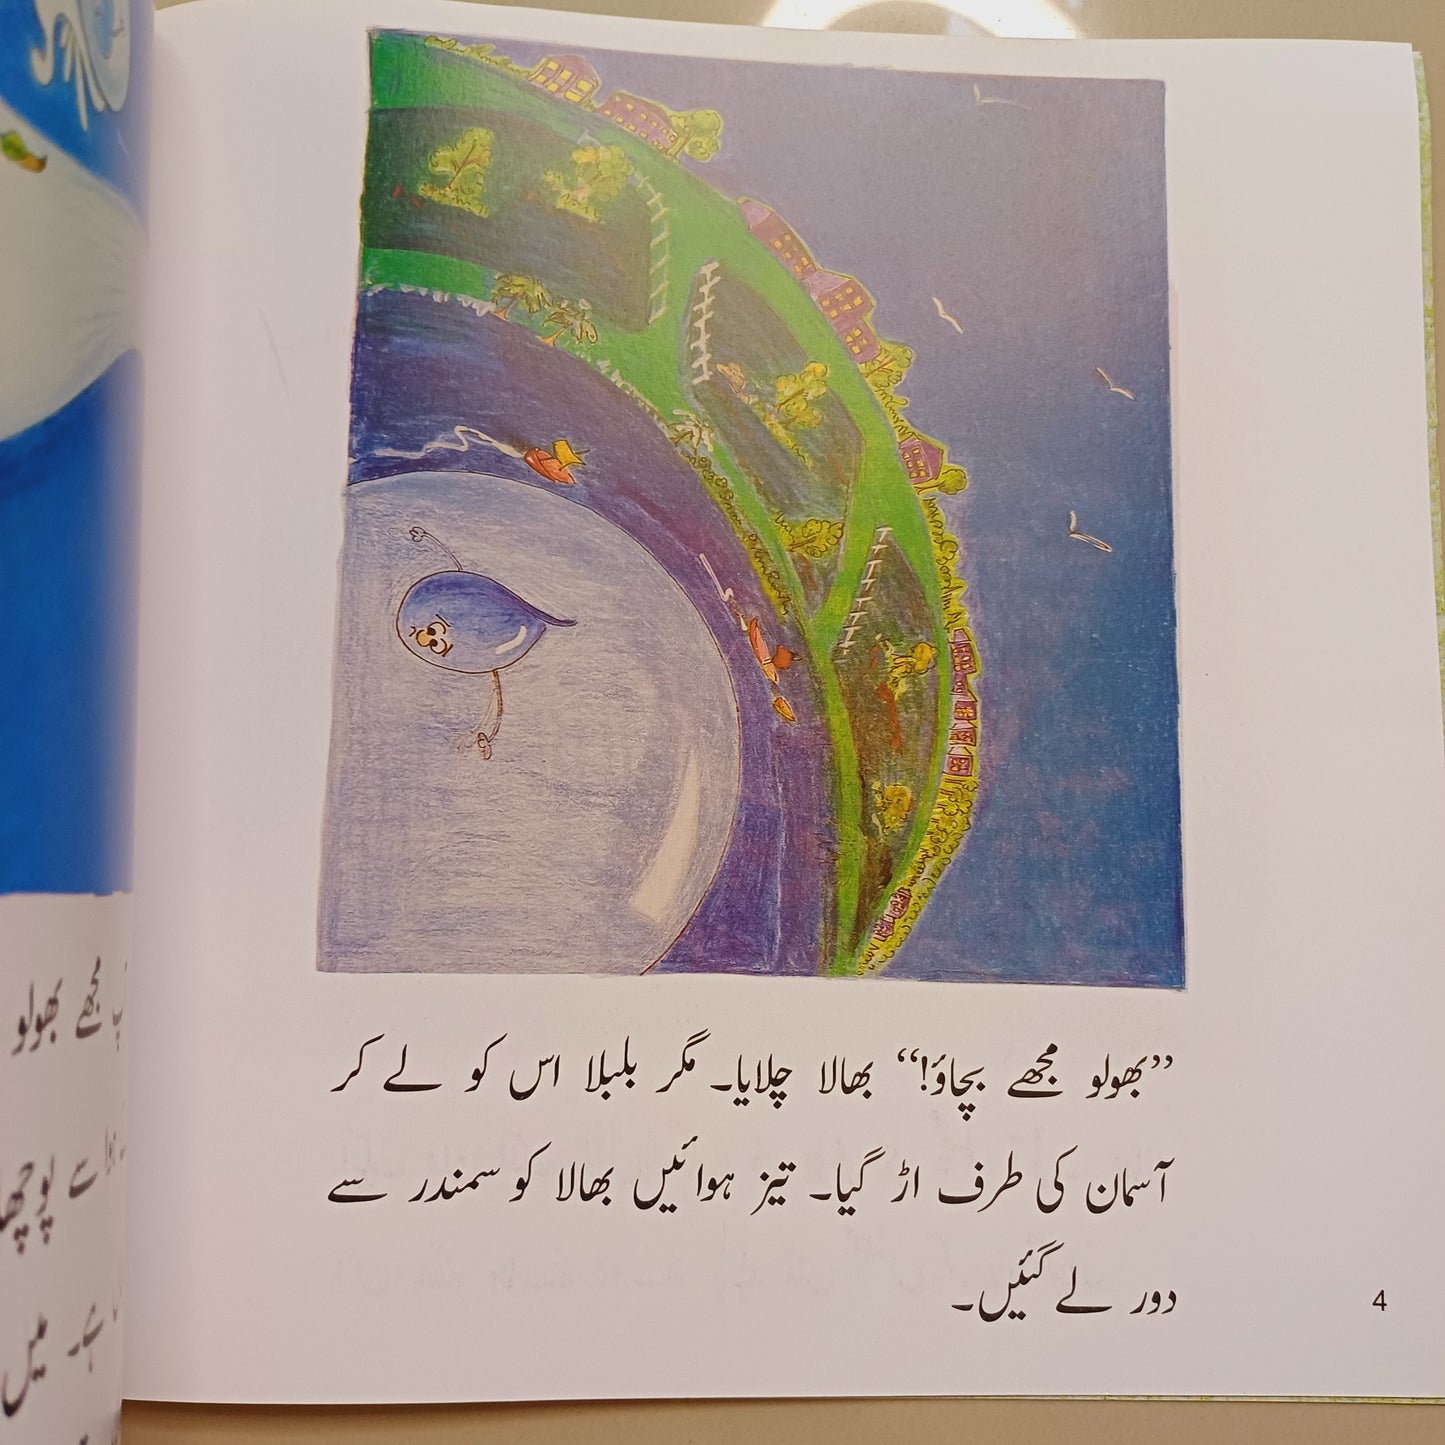 ”بھولو مجھے بچاؤ!“ بھالا چلایا۔ مگر بلبلا اس کو لے کر
آسمان کی طرف اڑ گیا۔ تیز ہوائیں بھالا کو سمندر سے
دور لے گئیں۔
4
مجھے بھولو
سے پوچھا
ہے۔ میں